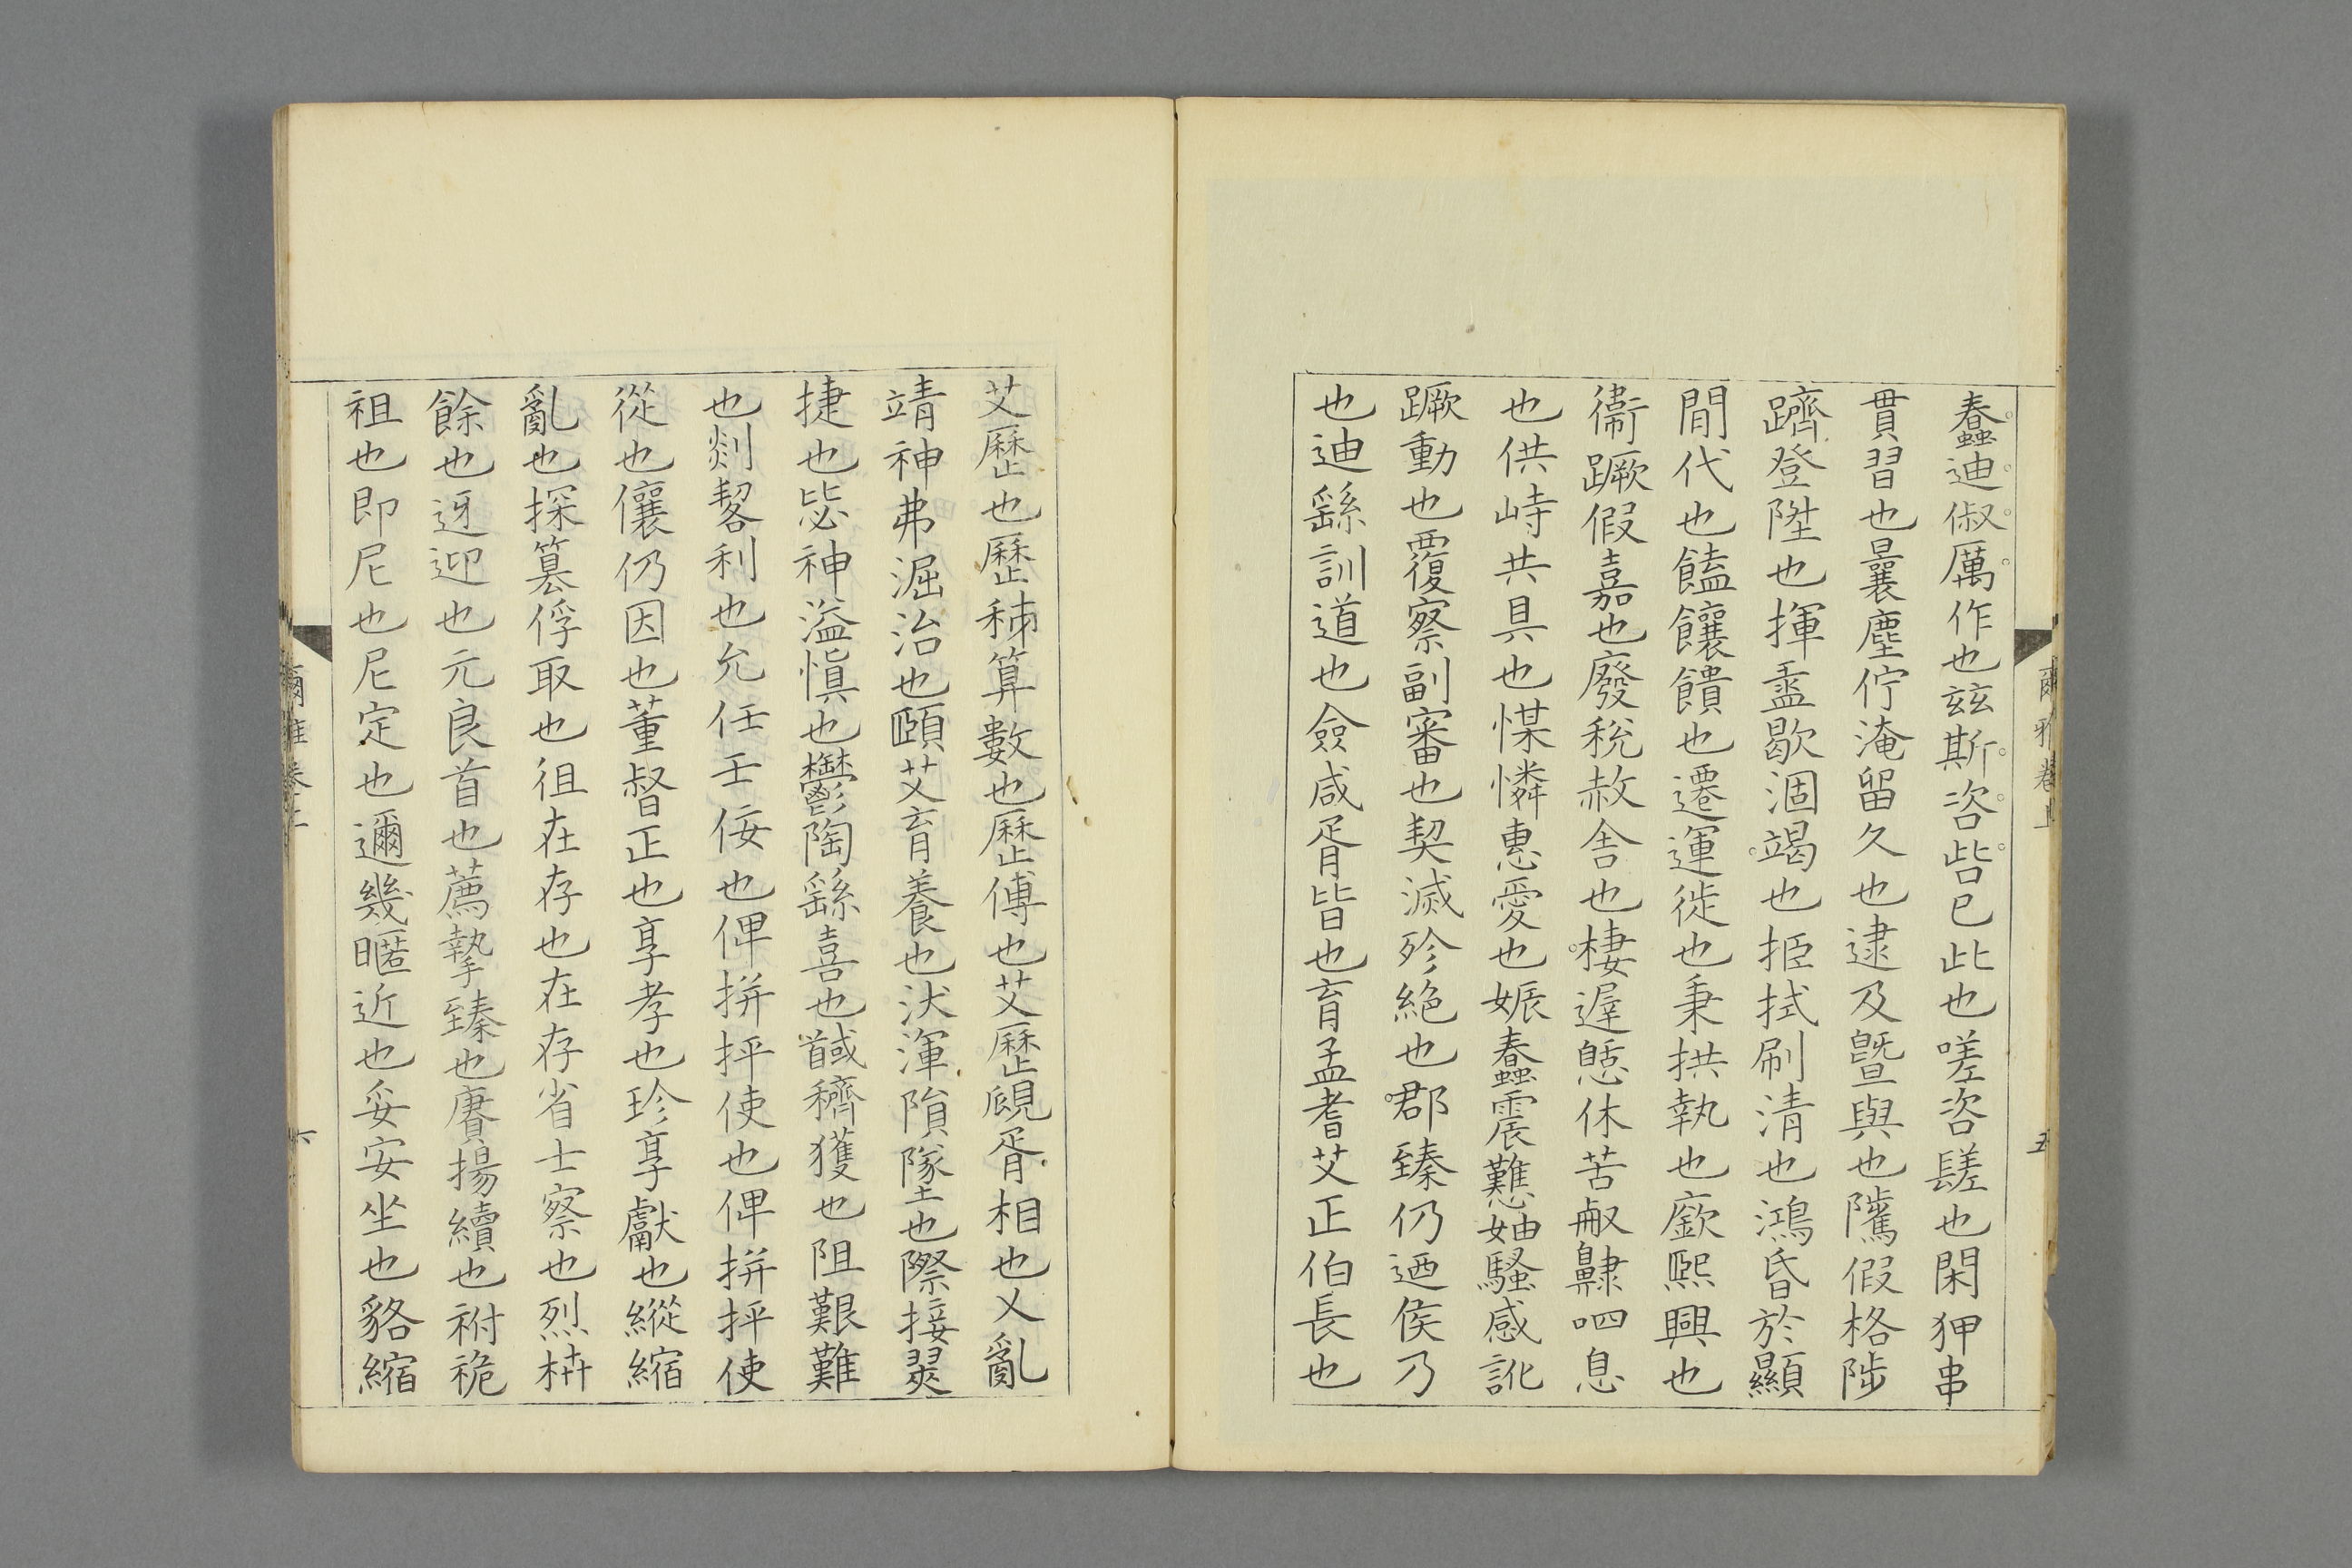 蠢迪俶厲作也茲斯咨呰已此也嗟咨䰈也閑狎串
貫習也曩塵佇淹留久也逮及曁與也騭假格陟
躋登陞也揮盝歇涸竭也抿拭刷清也鴻昏於顯
閒代也饁饟饋也遷運徙也秉拱執也廞熙興也
衞蹶假嘉也廢稅赦舍也棲遟憇休苦㕞䶐呬息
也供峙共具也㥤憐惠愛也娠蠢震戁妯騷感訛
蹶動也覆察副審也契滅殄絶也郡臻仍迺侯乃
也迪繇訓道也僉咸胥皆也育孟耆艾正伯長也
艾歷也歷秭算數也歷傅也艾歷覛胥相也乂亂
靖神弗淈治也頤艾育養也汱渾隕墜也際接翜
捷也毖神溢愼也鬱陶繇喜也馘穧獲也阻艱難
也剡䂮利也允任壬佞也俾拼抨使也俾拼抨使
從也儴仍因也董督正也享孝也珍享獻也縱縮
亂也探篡俘取也徂在存也在存省士察也烈枿
餘也迓迎也元良首也薦摯臻也賡揚續也祔祪
祖也即尼也尼定也邇幾暱近也妥安坐也貉縮
爾雅卷上
五
爾雅卷上
六